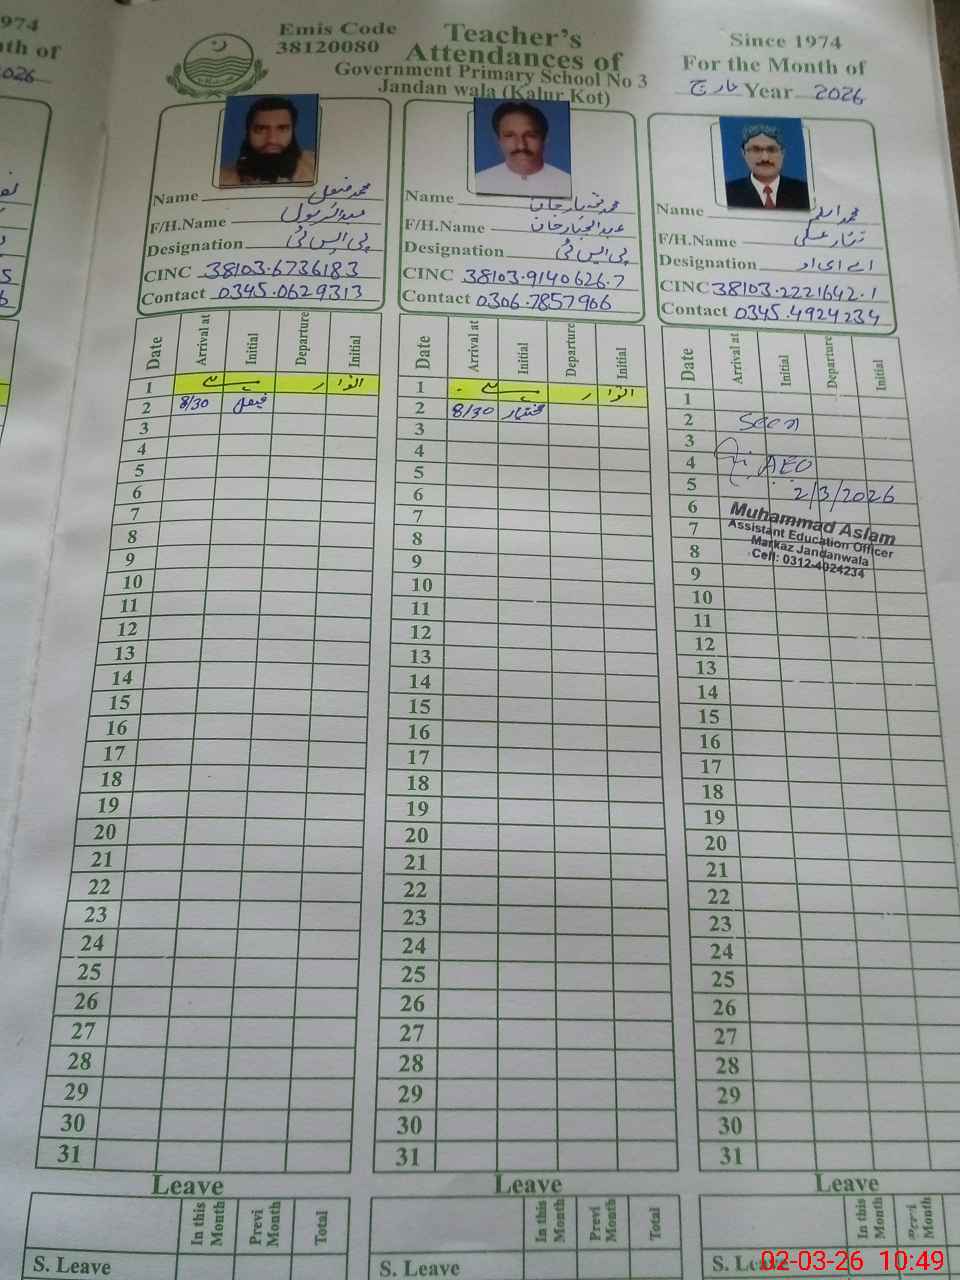 Emis Code
38120080
Teacher's
Attendances of
Government Primary School No 3
Jandan wala (Kalur Kot)
Since 1974
For the Month of
مارچ Year 2026
Name محمد فیصل
F/H.Name
Designation پی ایس ٹی
CINC 38103.6736183
Contact 0345.0629313
Name
F/H.Name عبدالجبار خان
Designation پی ایس ٹی
CINC 38103.9140626.7
Contact 0306.7857966
Name محمد اسلم
F/H.Name
Designation اے ای او
CINC 38103.2221642.1
Contact 0345.4924234
Date Arrival at Initial Departure Initial
Date Arrival at Initial Departure Initial
Date Arrival at Initial Departure Initial
1 اتوار
2 8/30 فیصل
3
4
5
6
7
8
9
10
11
12
13
14
15
16
17
18
19
20
21
22
23
24
25
26
27
28
29
30
31
1 اتوار
2 8/30
3
4
5
6
7
8
9
10
11
12
13
14
15
16
17
18
19
20
21
22
23
24
25
26
27
28
29
30
31
1
2 Seen
3
4 AEO
5 2/3/2026
6 Muhammad Aslam
7 Assistant Education Officer
Markaz Jandanwala
8 Cell: 0312-4924234
9
10
11
12
13
14
15
16
17
18
19
20
21
22
23
24
25
26
27
28
29
30
31
Leave
In this Month Previ Month Total
S. Leave
Leave
In this Month Previ Month Total
S. Leave
Leave
In this Month Previ Month
S. Leave
02-03-26 10:49